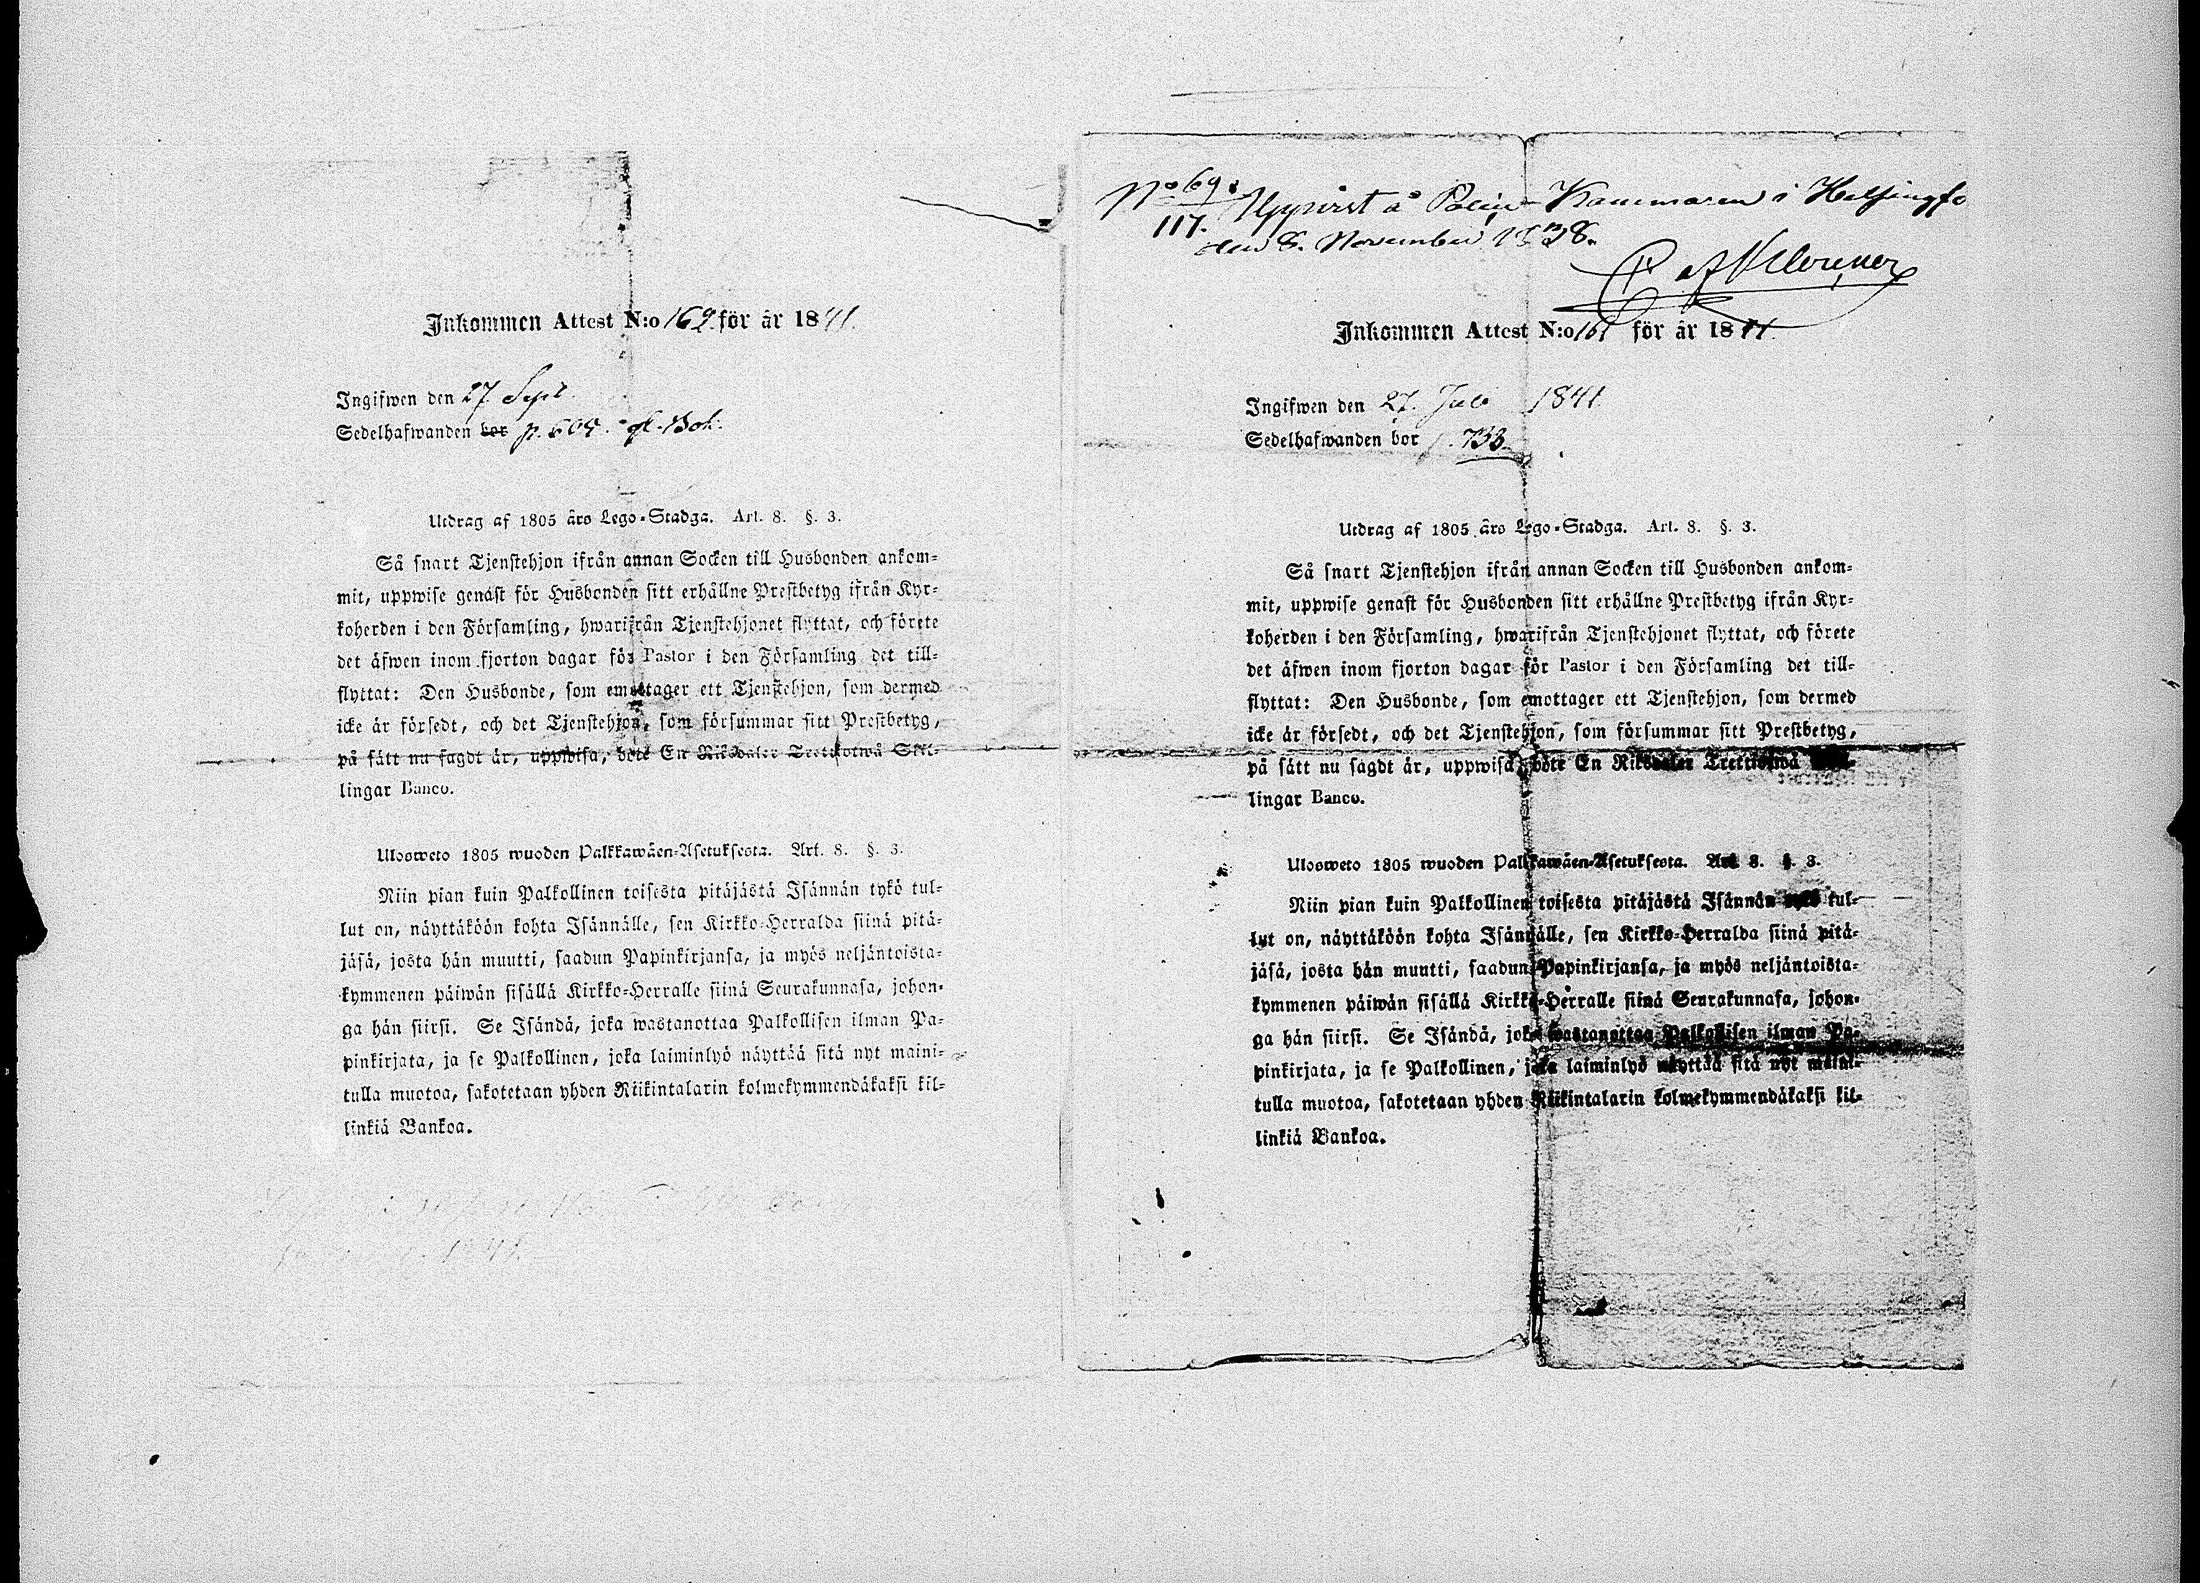 Inkommen Attest N:o 162 för år 1841.
Ingifwen den 27 Sept.
Sedelhafwanden bor p. gl. Bok.
Utdrag af 1805 års Lego-Stadga. Art. 8. §. 3.
Så snart Tjenstehjon ifrån annan Socken till Husbonden ankom-
mit, uppwise genast för Husbonden sitt erhållne Prestbetyg ifrån Kyr-
koherden i den Församling, hwarifrån Tjenstehjonet flyttat, och förete
det äfwen inom fjorton dagar för Pastor i den Församling det till-
flyttat: Den Husbonde, som emottager ett Tjenstehjon, som dermed
icke är försedt, och det Tjenstehjon, som försummar sitt Prestbetyg,
på sätt nu sagdt är, uppwisa, böte En Riksdaler Trettiotwå Skil-
lingar Banco.
Ulosweto 1805 wuoden Palkkawäen-Asetuksesta. Art. 8. §. 3.
Niin pian kuin Palkollinen toisesta pitäjästä Isännän tykö tul-
lut on, näyttäköön kohta Isännälle, sen Kirkko-Herralda siinä pitä-
jäsä, josta hän muutti, saadun Papinkirjansa, ja myös neljäntoista-
kymmenen päiwän sisällä Kirkko-Herralle siinä Seurakunnasa, johon-
ga hän siirsi. Se Isändä, joka wastanottaa Palkollisen ilman Pa-
pinkirjata, ja se Palkollinen, joka laiminlyö näyttää sitä nyt maini-
tulla muotoa, sakotetaan yhden Riikintalarin kolmekymmendäkaksi kil-
linkiä Bankoa.
No 69
117. Uppvist å Polis-Kammaren i Helsingfo
den 8. November 1838.
Inkommen Attest N:o 161 för år 1841.
Ingifwen den 27. Juli 1841
Sedelhafwanden bor p. 733.
Utdrag af 1805 års Lego-Stadga. Art. 8. §. 3.
Så snart Tjenstehjon ifrån annan Socken till Husbonden ankom-
mit, uppwise genast för Husbonden sitt erhållne Prestbetyg ifrån Kyr-
koherden i den Församling, hwarifrån Tjenstehjonet flyttat, och förete
det äfwen inom fjorton dagar för Pastor i den Församling det till-
flyttat: Den Husbonde, som emottager ett Tjenstehjon, som dermed
icke är försedt, och det Tjenstehjon, som försummar sitt Prestbetyg,
på sätt nu sagdt är, uppwisa, böte En Riksdaler Trettiotwå
lingar Banco.
Ulosweto 1805 wuoden Palkkawäen-Asetuksesta. Art. 8. §. 3.
Niin pian kuin Palkollinen toisesta pitäjästä Isännän tykö tul-
lut on, näyttäköön kohta Isännälle, sen Kirkko-Herralda siinä pitä-
jäsä, josta hän muutti, saadun Papinkirjansa, ja myös neljäntoista-
kymmenen päiwän sisällä Kirkko-Herralle siinä Seurakunnasa, johon-
ga hän siirsi. Se Isändä, joka wastanottaa Palkollisen ilman Pa-
pinkirjata, ja se Palkollinen, joka laiminlyö näyttää sitä nyt maini-
tulla muotoa, sakotetaan yhden Riikintalarin kolmekymmendäkaksi kil-
linkiä Bankoa.